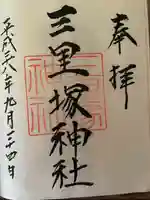 奉拝
三里塚神社
平成二十八年九月二十四日